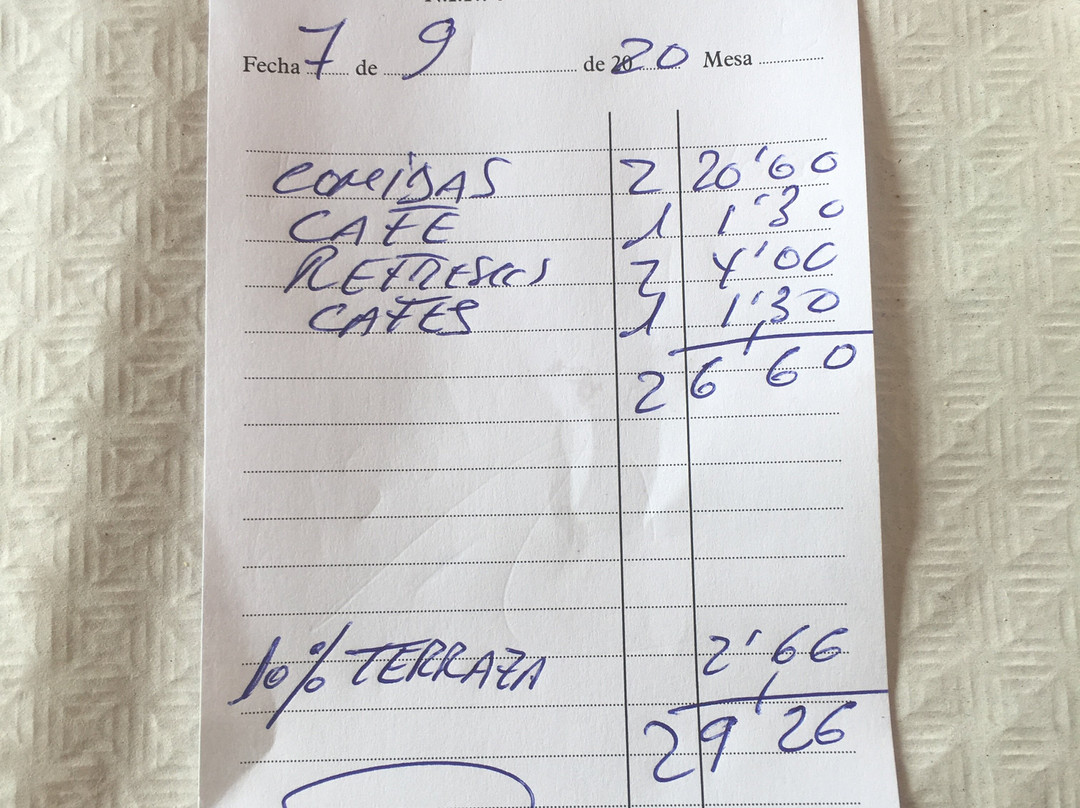 Fecha 7 de 9 de 2020 Mesa
COMIDAS 2 20'60
CAFE 1 1'30
REFRESCOS 2 4'00
CAFES 1 1'30
26'60
10% TERRAZA 2'66
29'26